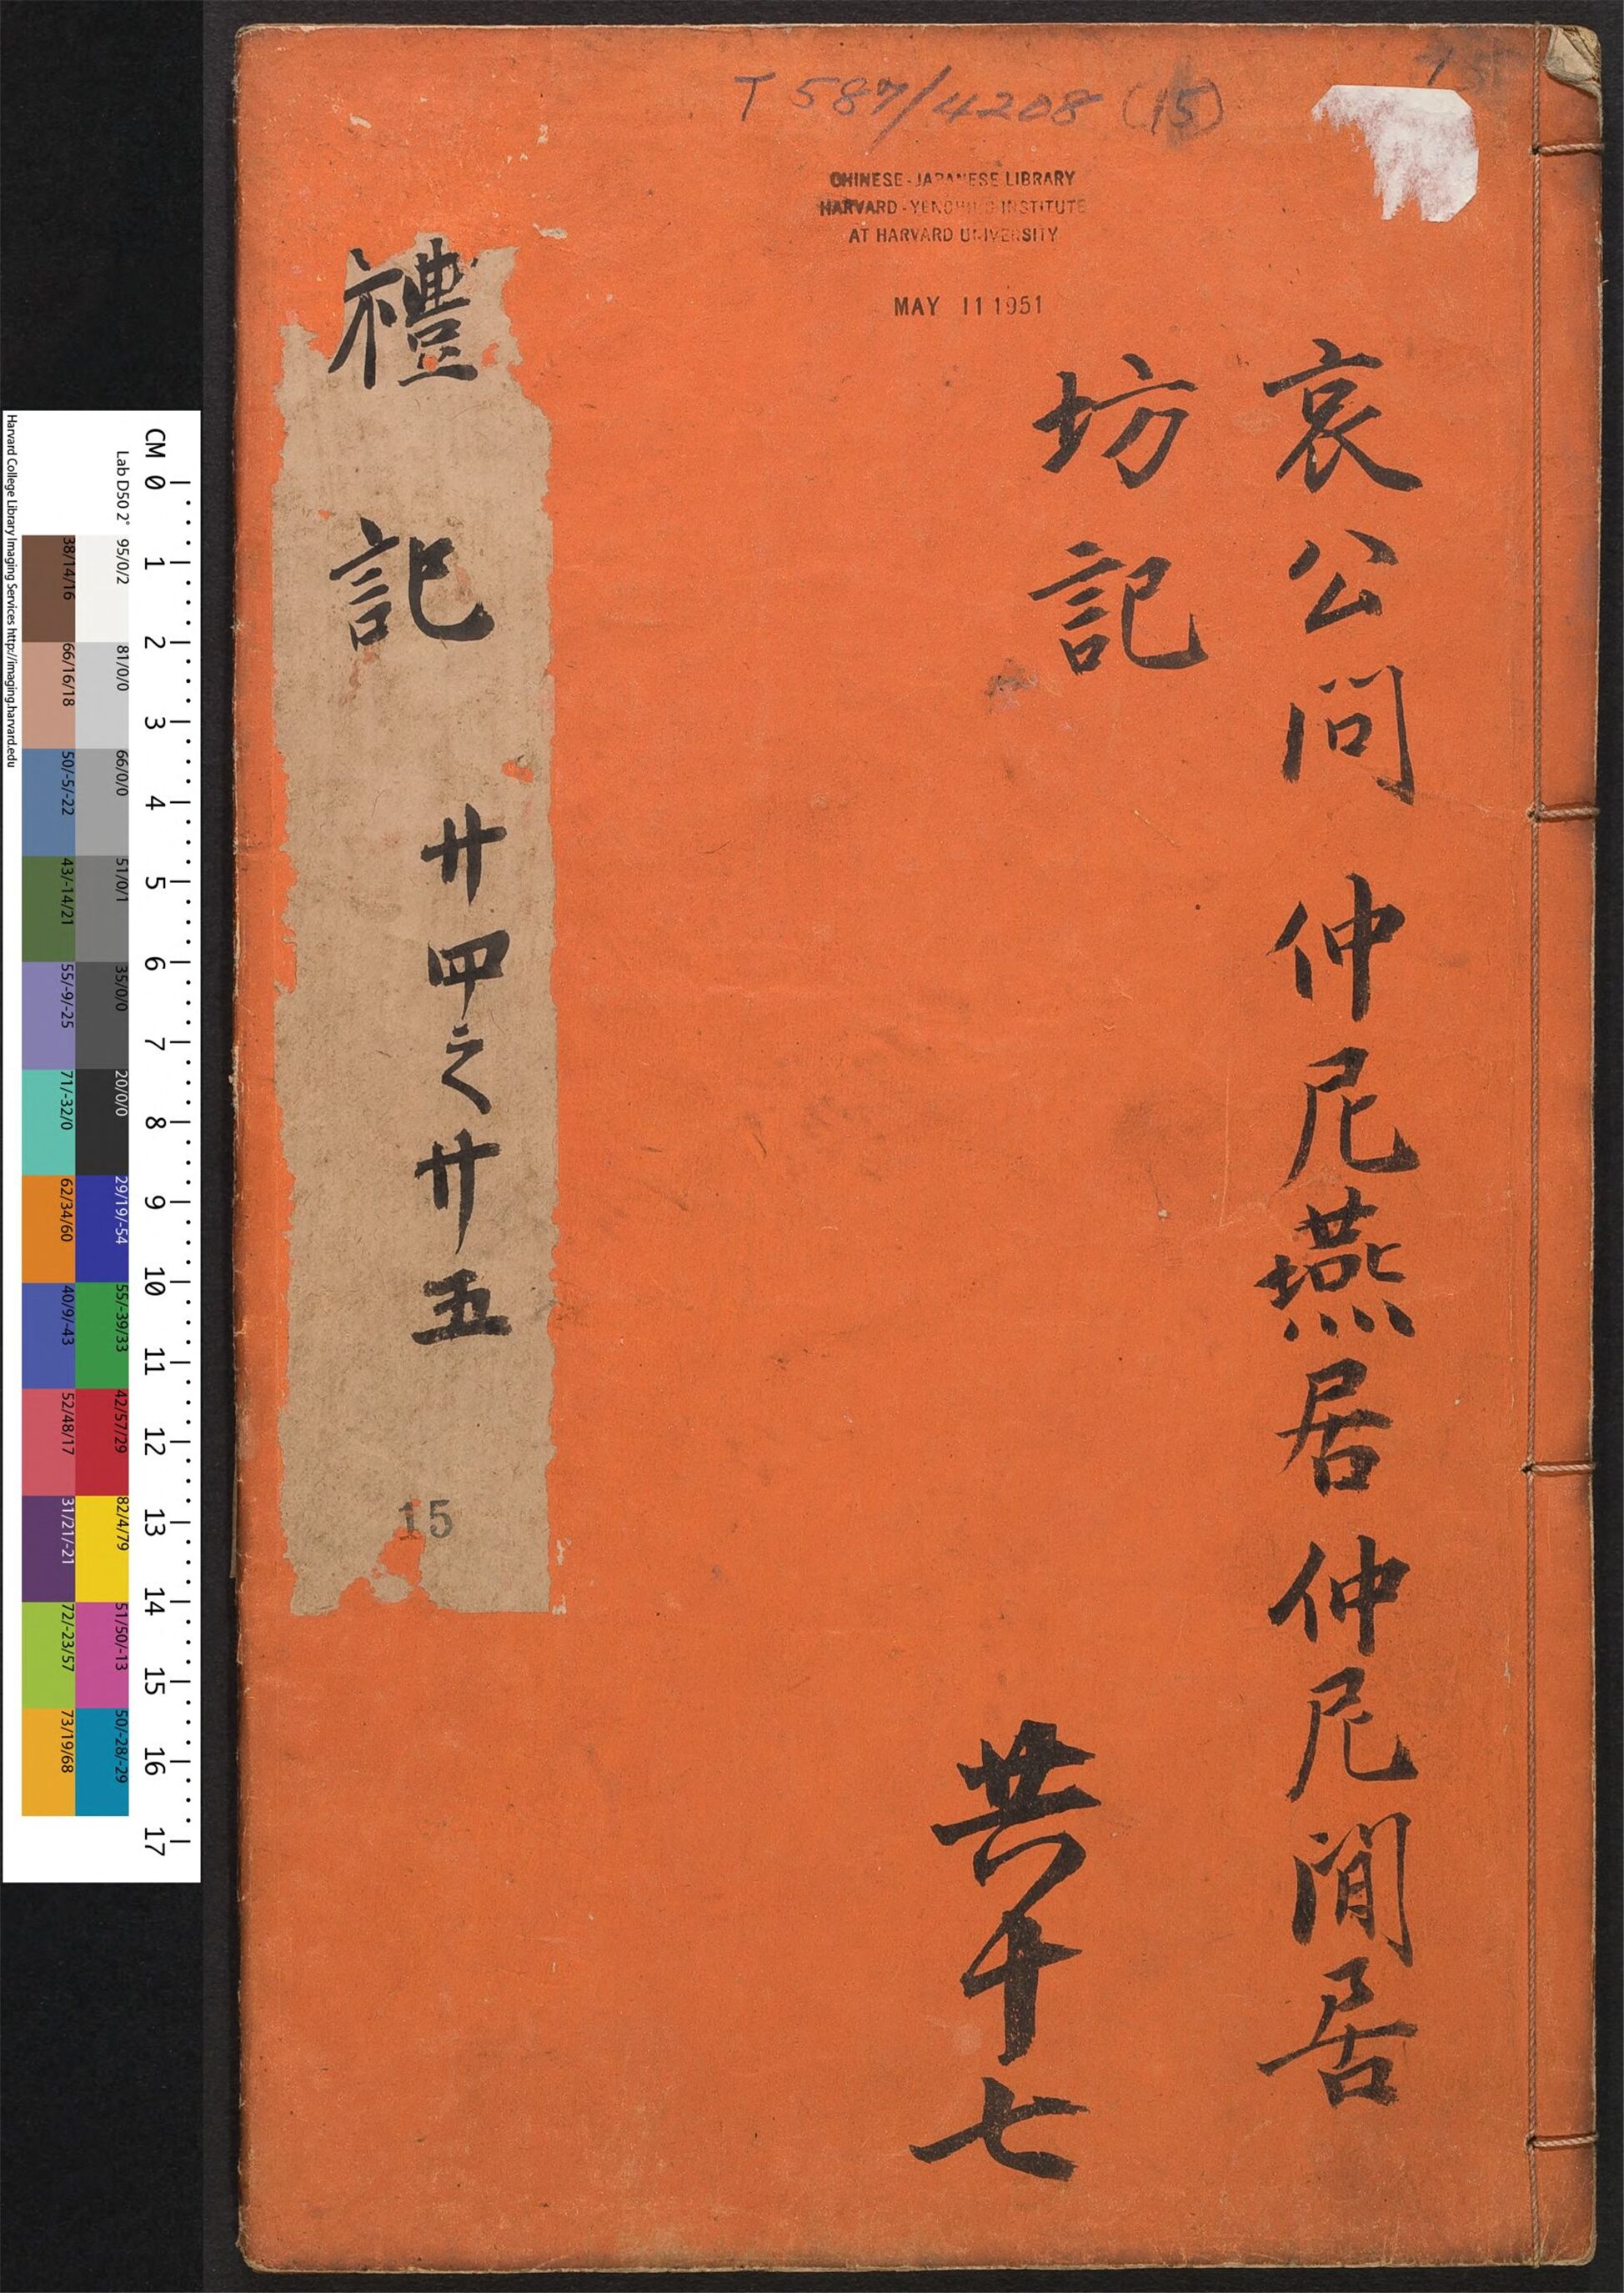 T 587/4208 (15)
CHINESE-JAPANESE LIBRARY
HARVARD-YENCHING INSTITUTE
AT HARVARD UNIVERSITY
MAY 11 1951
哀公问 仲尼燕居 仲尼閒居
坊記
共十七
禮記 廿四之廿五
15
CM 0 1 2 3 4 5 6 7 8 9 10 11 12 13 14 15 16 17
Lab D50 2° 95/0/2 81/0/0 66/0/0 51/0/1 35/0/0 20/0/0 29/19/-54 55/-39/33 42/57/29 82/4/79 51/50/-13 50/-28/-29
38/14/16 66/16/18 50/-5/-22 43/-14/21 55/-9/-25 71/-32/0 62/34/60 40/9/-43 52/48/17 31/21/-21 72/-23/57 73/19/68
Harvard College Library Imaging Services http://imaging.harvard.edu